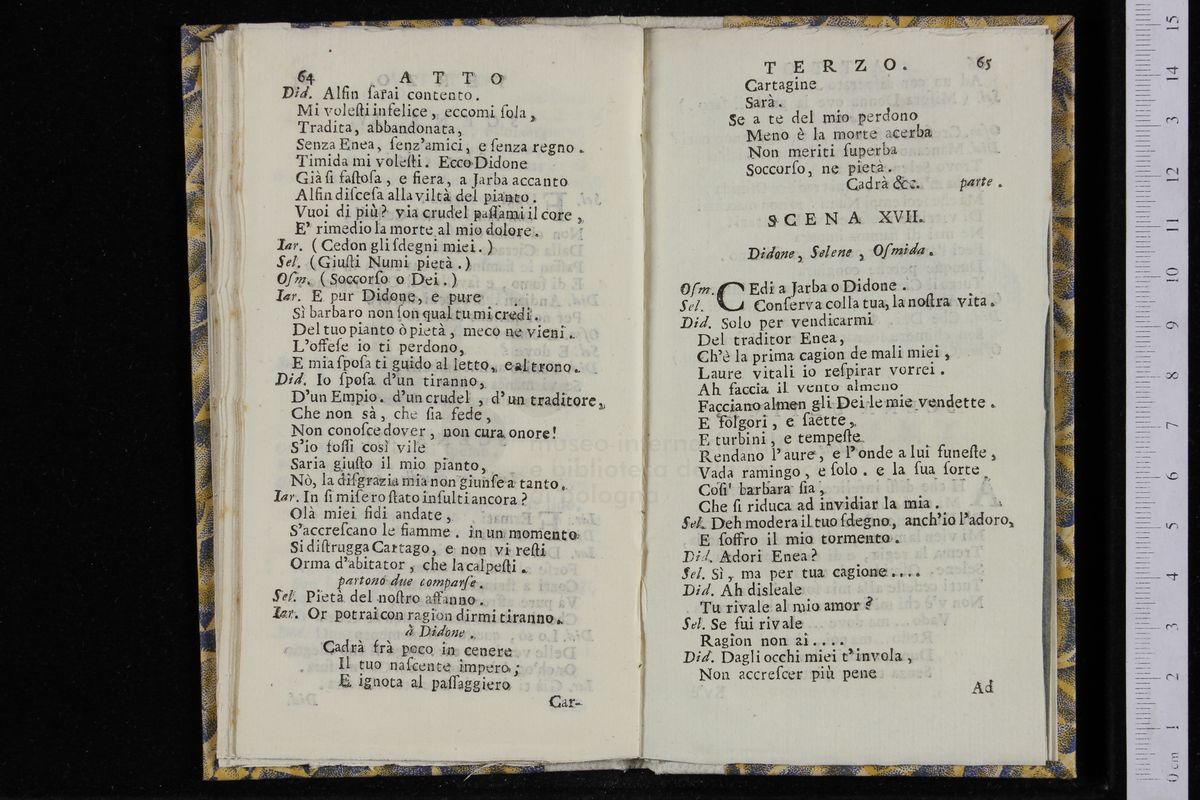 64 ATTO
Did. Alfin ſarai contento.
Mi voleſti infelice, eccomi ſola,
Tradita, abbandonata,
Senza Enea, ſenz'amici, e ſenza regno.
Timida mi voleſti. Ecco Didone
Già ſi faſtoſa, e fiera, a Jarba accanto
Alfin diſceſa alla viltà del pianto.
Vuoi di più? via crudel paſſami il core,
E' rimedio la morte al mio dolore.
Iar. (Cedon gli ſdegni miei.)
Sel. (Giuſti Numi pietà.)
Oſm. (Soccorſo o Dei.)
Iar. E pur Didone, e pure
Sì barbaro non ſon qual tu mi credi.
Del tuo pianto ò pietà, meco ne vieni.
L'offeſe io ti perdono,
E mia ſpoſa ti guido al letto, e al trono.
Did. Io ſpoſa d'un tiranno,
D'un Empio. d'un crudel, d'un traditore,
Che non sà, che ſia fede,
Non conoſce dover, non cura onore!
S'io foſſi così vile
Saria giuſto il mio pianto,
Nò, la diſgrazia mia non giunſe a tanto.
Iar. In ſi miſero ſtato inſulti ancora?
Olà miei fidi andate,
S'accreſcano le fiamme. in un momento
Si diſtrugga Cartago, e non vi reſti
Orma d'abitator, che la calpeſti.
partono due comparſe.
Sel. Pietà del noſtro affanno.
Iar. Or potrai con ragion dirmi tiranno.
à Didone.
Cadrà frà poco in cenere
Il tuo naſcente impero;
E ignota al paſſaggiero
Car-
TERZO. 65
Cartagine
Sarà.
Se a te del mio perdono
Meno è la morte acerba
Non meriti ſuperba
Soccorſo, ne pietà.
Cadrà &c. parte.
SCENA XVII.
Didone, Selene, Oſmida.
Oſm. CEdi a Jarba o Didone.
Sel. Conſerva colla tua, la noſtra vita.
Did. Solo per vendicarmi
Del traditor Enea,
Ch'è la prima cagion de mali miei,
Laure vitali io reſpirar vorrei.
Ah faccia il vento almeno
Facciano almen gli Dei le mie vendette.
E folgori, e ſaette,
E turbini, e tempeſte
Rendano l'aure, e l'onde a lui funeſte,
Vada ramingo, e ſolo. e la ſua ſorte
Coſi' barbara ſia,
Che ſi riduca ad invidiar la mia.
Sel. Deh modera il tuo ſdegno, anch'io l'adoro,
E ſoffro il mio tormento.
Did. Adori Enea?
Sel. Sì, ma per tua cagione....
Did. Ah disleale
Tu rivale al mio amor?
Sel. Se fui rivale
Ragion non ai....
Did. Dagli occhi miei t'invola,
Non accreſcer più pene
Ad